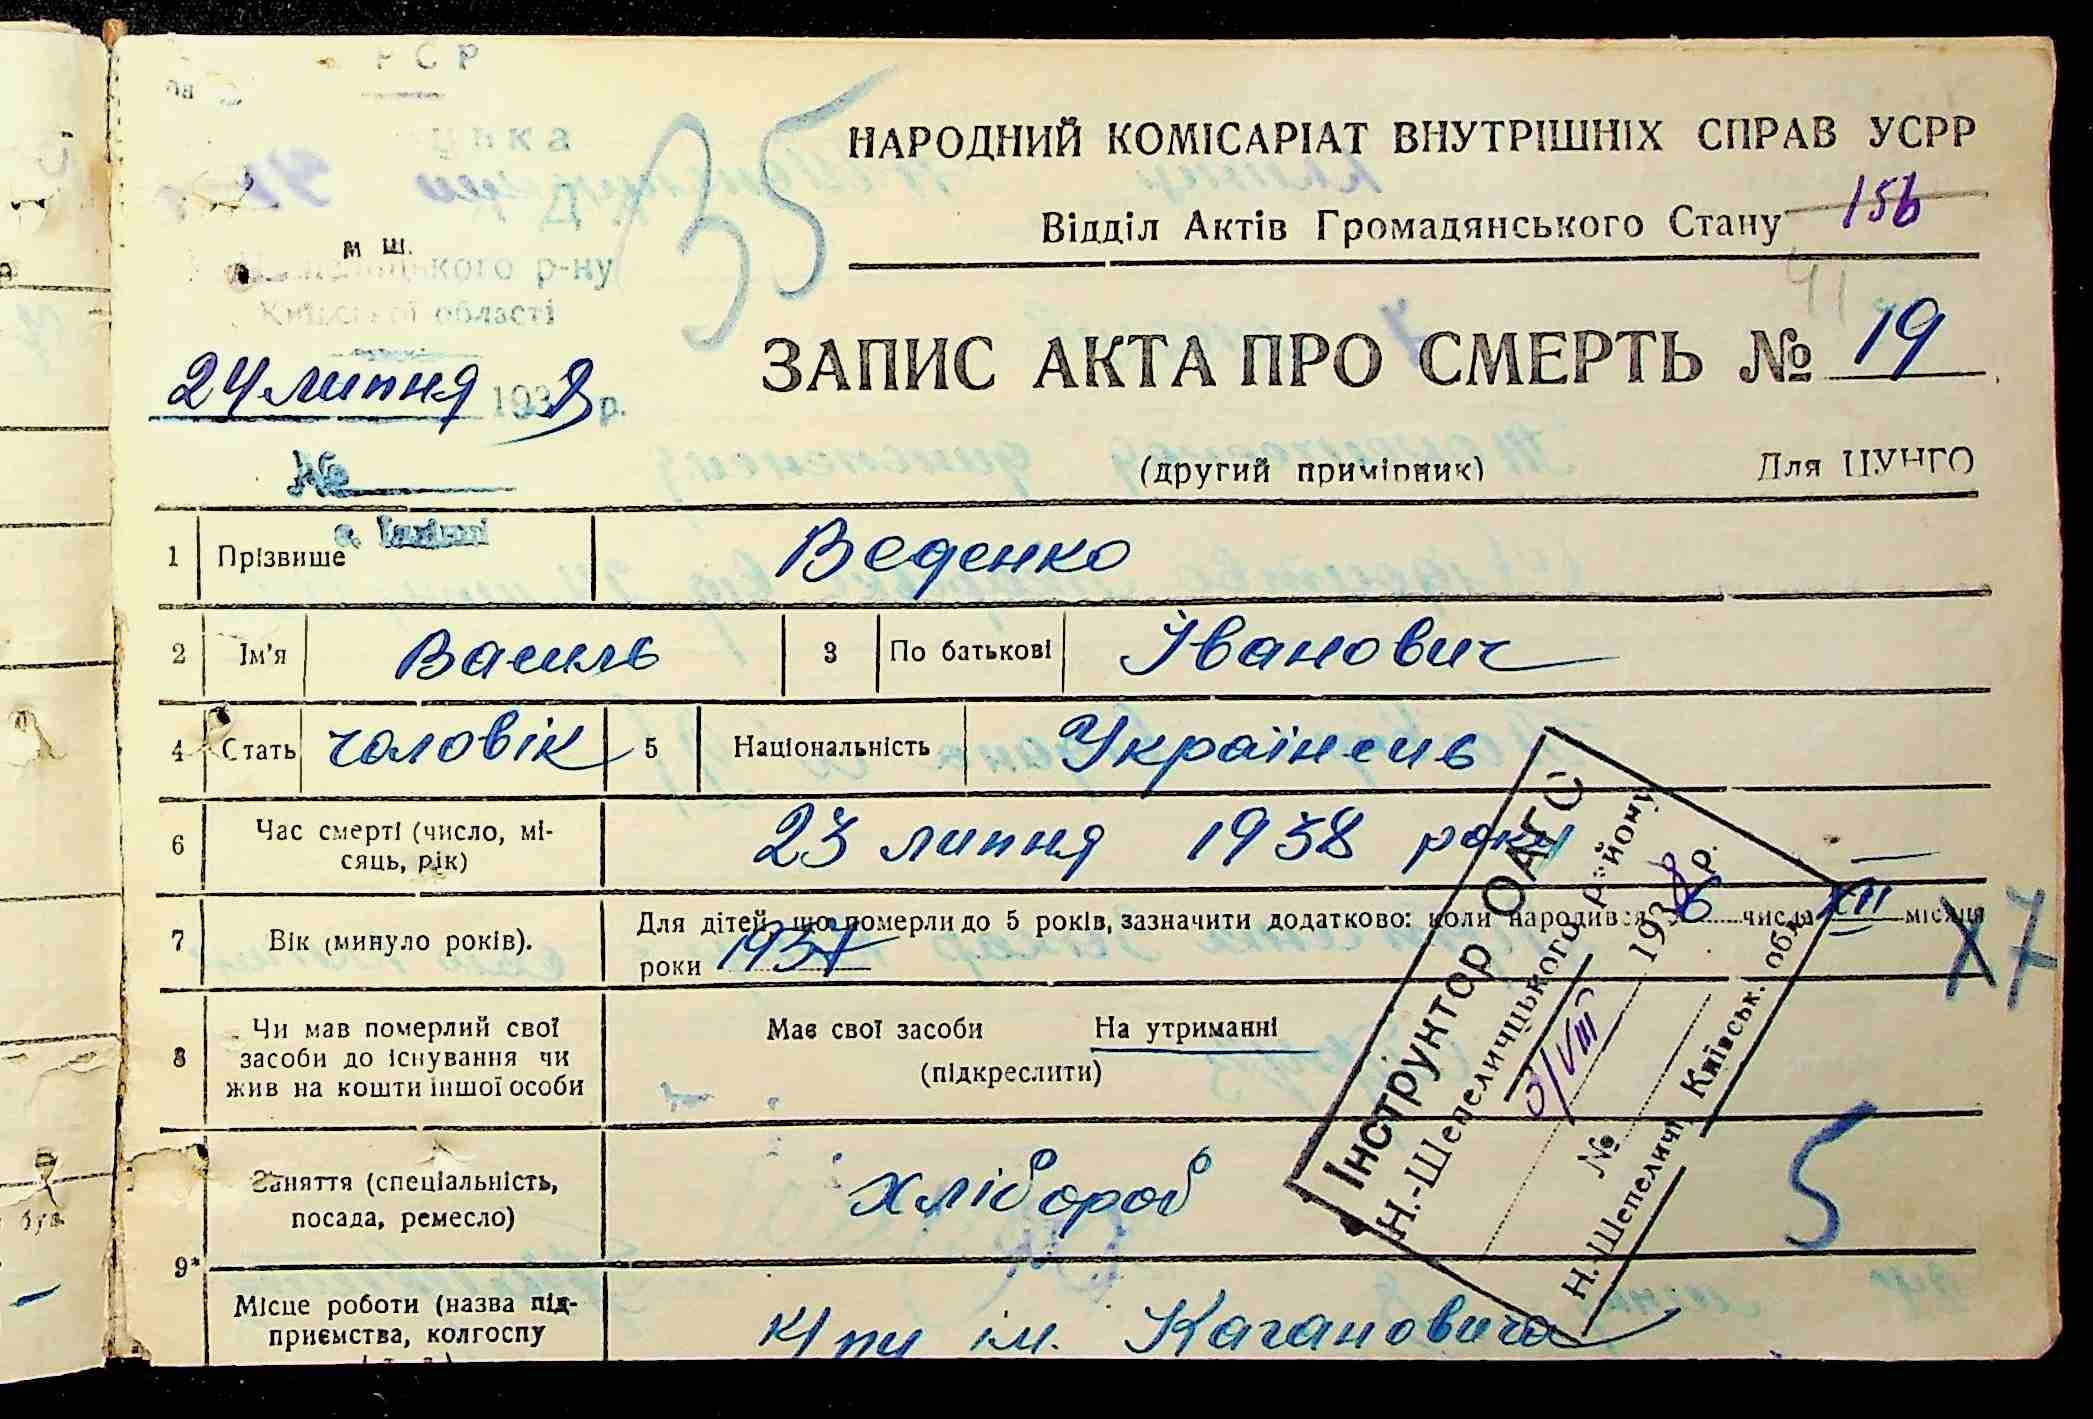 РСР
35
НАРОДНИЙ КОМІСАРІАТ ВНУТРІШНІХ СПРАВ УСРР
Відділ Актів Громадянського Стану 156
41
р-ну
Київської області
24 липня 1938 р.
ЗАПИС АКТА ПРО СМЕРТЬ № 19
№
(другий примірник) Для ЦУНГО
1 Прізвище Веденко
2 Ім'я Василь 3 По батькові Іванович
4 Стать чоловік 5 Національність Українець
6 Час смерті (число, мі-
сяць, рік) 23 липня 1938 року
7 Вік (минуло років). Для дітей, що померли до 5 років, зазначити додатково: коли народився 6 числа XII місяця
роки 1937
х7
8 Чи мав померлий свої
засоби до існування чи
жив на кошти іншої особи
Має свої засоби На утриманні
(підкреслити)
Інструктор ОАГС
Н.-Шепеличцького району
3/VIII 1938 р.
№
Н.-Шепеличі Київськ. обл.
5
9*
Заняття (спеціальність,
посада, ремесло) хлібороб
Місце роботи (назва під-
приємства, колгоспу
ім. Кагановича